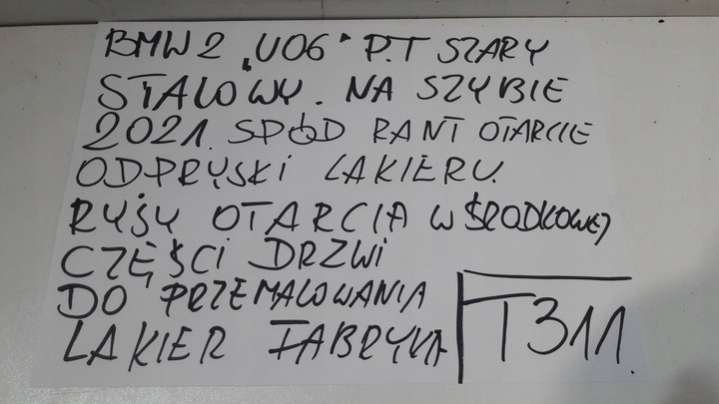 BMW 2 „U06" P.T SZARY
STALOWY. NA SZYBIE
2021. SPÓD RANT OTARCIE
ODPRYSKI LAKIERU.
RYSY OTARCIA W ŚRODKOWEJ
CZĘŚCI DRZWI
DO PRZEMALOWANIA
LAKIER FABRYKA
T311.